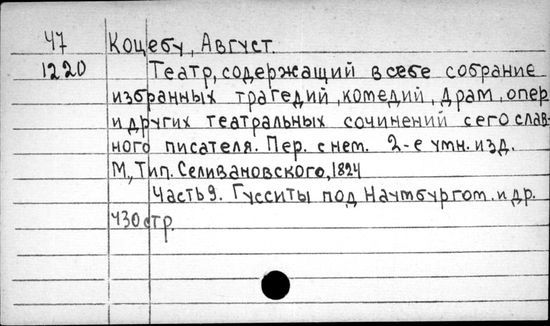 47 Коцебу, Август.
1220 Театр, содержащий в себе собрание
избранных трагедий, комедий, драм, опер
и других театральных сочинений сего слав-
ного писателя. Пер. с нем. 2-е умн. изд.
М., Тип. Селивановского, 1824
Часть 9. Гусситы под Наумбургом. и др.
430 стр.